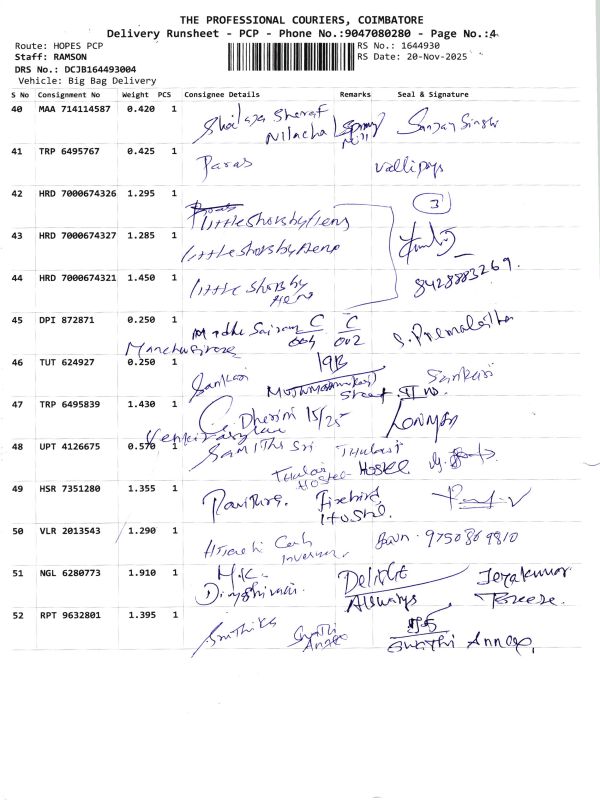 THE PROFESSIONAL COURIERS, COIMBATORE
Delivery Runsheet - PCP - Phone No.:9047080280 - Page No.:4
Route: HOPES PCP RS No.: 1644930
Staff: RAMSON RS Date: 20-Nov-2025
DRS No.: DCJB164493004
Vehicle: Big Bag Delivery
S No Consignment No Weight PCS Consignee Details Remarks Seal & Signature
40 MAA 714114587 0.420 1 Sanjay Singh
Nilacha
41 TRP 6495767 0.425 1 Paras
42 HRD 7000674326 1.295 1 3
littleshorsbyHeng
43 HRD 7000674327 1.285 1
littleshorsbyHeng
44 HRD 7000674321 1.450 1 8428883269.
little shorsby
45 DPI 872871 0.250 1 C C S. Premalatha
004 002
46 TUT 624927 0.250 1 Sankari 19B Sankari
Street
47 TRP 6495839 1.430 1 Dherini 15/25
48 UPT 4126675 0.570 1 SAMITHI Sri Thulasi
Thulasi Hostel Hostel
49 HSR 7351280 1.355 1 Firebird
Hostel.
50 VLR 2013543 1.290 1 Hitachi Cash 9750869810
51 NGL 6280773 1.910 1 M.K. Delight Jeyakumar
Allways Breeze.
52 RPT 9632801 1.395 1 Smithika Swathi
Annex Swathi Annex,